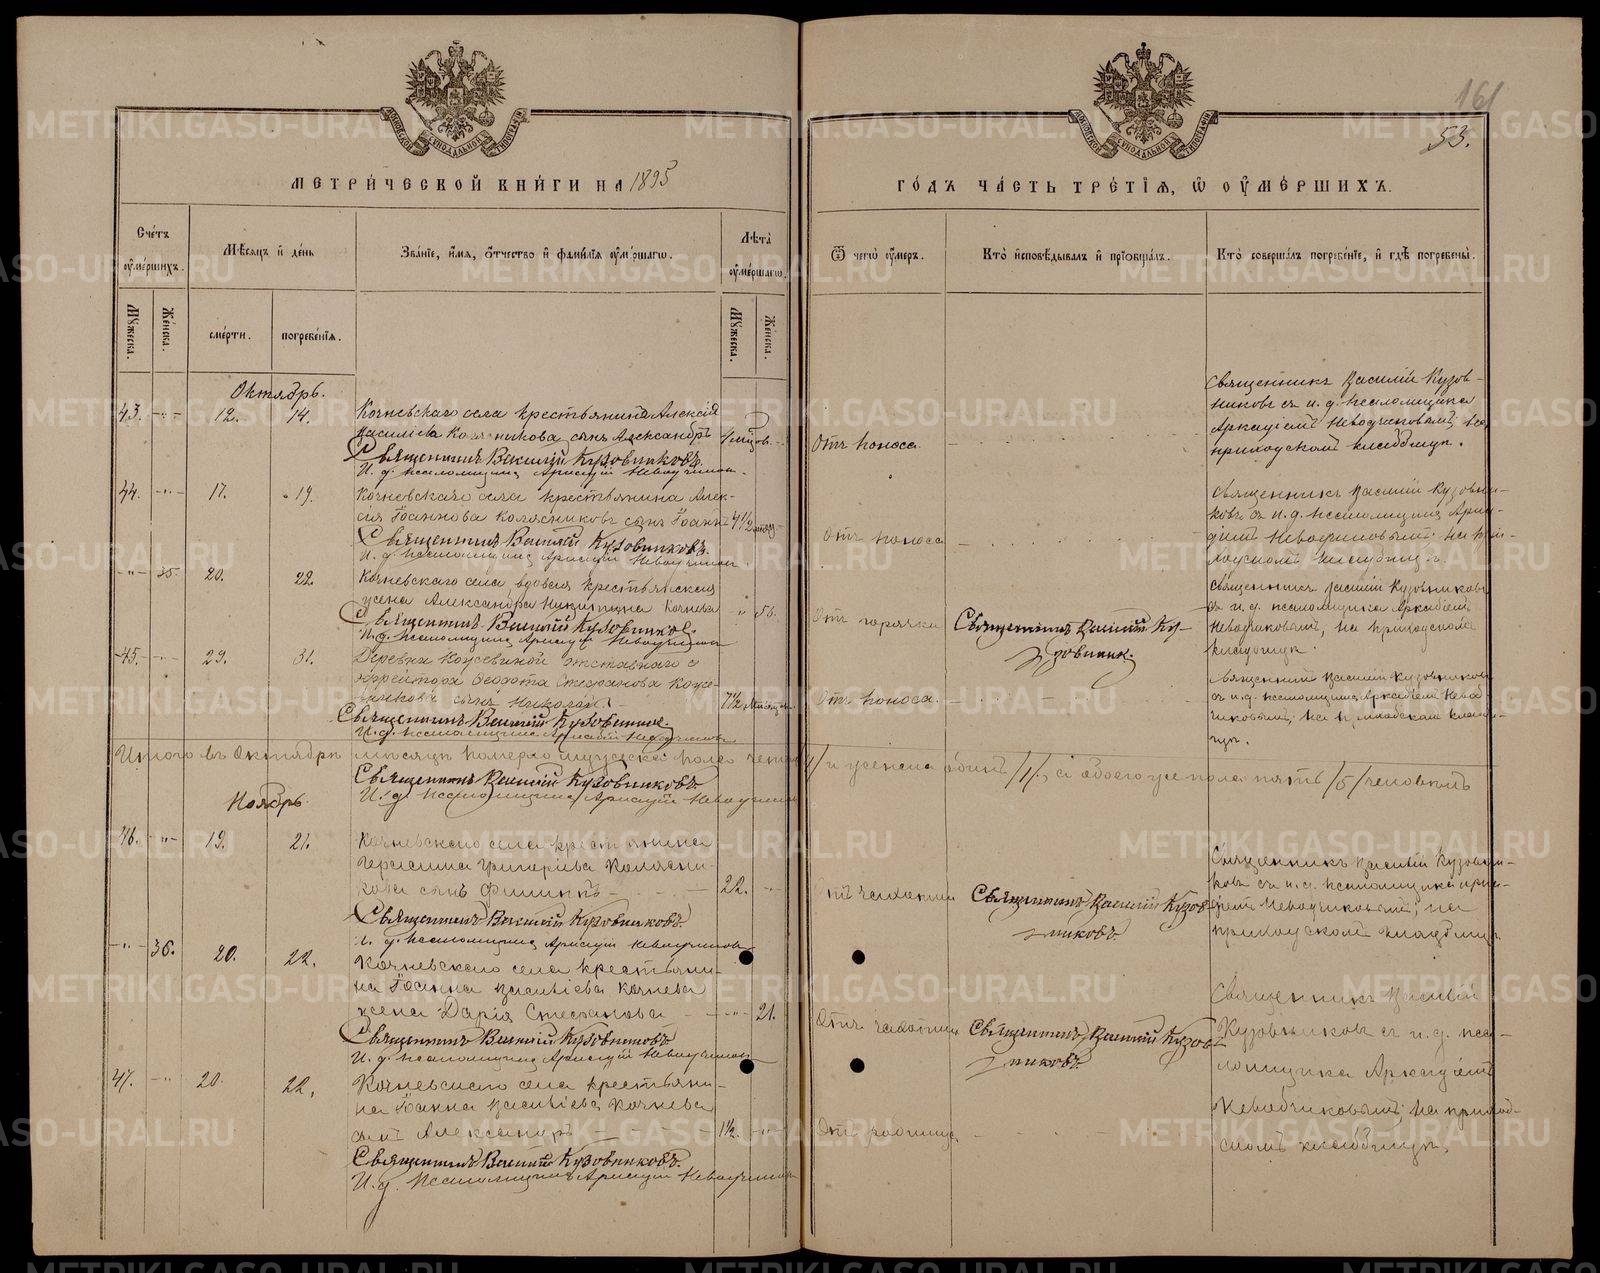 161
53.
МЕТРИЧЕСКОЙ КНИГИ НА 1895
ГОДЪ ЧАСТЬ ТРЕТІЯ, Ѿ ОУМЕРШИХЪ.
Счетъ оумершихъ.
Мѣсяцъ и день
Званіе, имя, отчество и фамилія оумершагѡ.
Лѣта оумершагѡ.
Ѿ чегѡ оумеръ.
Кто исповѣдывалъ и пріобщалъ.
Кто совершалъ погребеніе, и гдѣ погребены.
Мужеска.
Женска.
смерти.
погребенія.
Мужеска.
Женска.
Октябрь.
43. -"- 12. 14.
Кочневскаго села крестьянина Алексія
Василіева Колясникова сынъ Александръ
Священникъ Василій Кузовниковъ.
И. д. псаломщика Аркадій
Отъ поноса.
Священникъ Василій Кузов-
никовъ съ и. д. псаломщика
Аркадіемъ на
приходскомъ кладбищѣ.
44. -"- 17. 19.
Кочневскаго села крестьянина Алек-
сія Іоаннова Колясниковъ сынъ Іоаннъ
4 1/2
Священникъ Василій Кузовниковъ.
И. д. псаломщика Аркадій
Отъ поноса
Священникъ Василій Кузовни-
ковъ съ и. д. псаломщика Арка-
діемъ на при-
ходскомъ кладбищѣ.
-"- 35. 20. 22.
Кочневскаго села вдовая крестьянская
жена Александра Никитина Кочнева
" 55.
Священникъ Василій Кузовниковъ.
И. д. псаломщика Аркадій
Отъ горячки
Священникъ Василій Ку-
зовник.
Священникъ Василій Кузовниковъ
съ и. д. псаломщика Аркадіемъ
на приходскомъ
кладбищѣ.
45. -"- 29. 31.
Деревни отставнаго е-
фрейтора Ѳеодота Стефанова
сынъ Николай
7 1/2 мѣсяцев.
Священникъ Василій Кузовников.
И. д. псаломщика Аркадій
Отъ поноса.
Священникъ Василій Кузовниковъ
съ и. д. псаломщика Аркадіемъ
Итого въ Октябрѣ мѣсяцѣ померло мужеска пола четыре /4/ и женска одинъ /1/, а обоего же пола пять /5/ человѣкъ
Священникъ Василій Кузовниковъ.
И. д. псаломщика Аркадій
Ноябрь.
46. -"- 19. 21.
Кочневскаго села крестьянина
Герасима Григоріева Колясни-
кова сынъ Филиппъ
22. -"-
Священникъ Василій Кузовниковъ.
И. д. псаломщика Аркадій
Отъ чахотки
Священникъ Василій Кузов-
никовъ.
Священникъ Василій Кузовни-
ковъ съ и. д. псаломщика Арка-
діемъ на
приходскомъ кладбищѣ.
-"- 36. 20. 22.
Кочневскаго села крестьяни-
на Іоанна Василіева Кочнева
жена Дарія Стефанова
-"- 21.
Священникъ Василій Кузовниковъ
И. д. псаломщика Аркадій
Отъ чахотки
Священникъ Василій Кузов-
никовъ.
Священникъ Василій
Кузовниковъ съ и. д. пса-
ломщика Аркадіемъ
на приход-
скомъ кладбищѣ.
47. -"- 20. 22.
Кочневскаго села крестьяни-
на Іоанна Василіева Кочнева
сынъ Александръ
1 1/2. -"-
Священникъ Василій Кузовниковъ.
И. д. псаломщика Аркадій
Отъ родимца